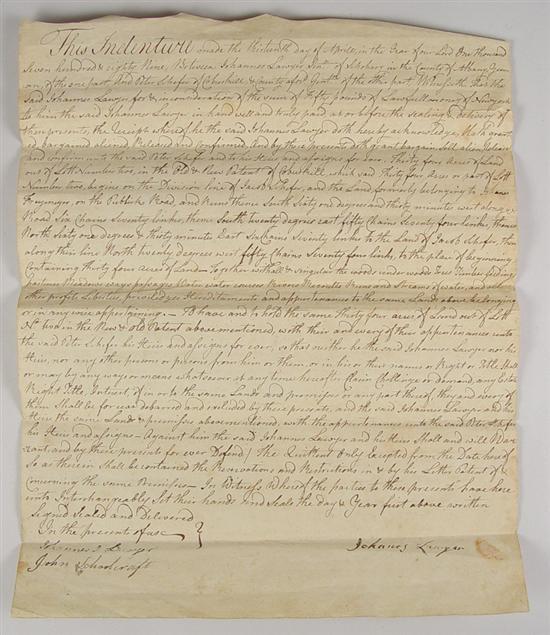 This Indenture made the thirteenth day of April, in the Year of our Lord One thousand
Seven hundred & eighty Nine, Between Johannes Lawyer of Schohary in the County of Albany Yeom
an, of the one part And Peter Shefer of Cobuskill & County afor of the other part. Witnesseth that the
Said Johannes Lawyer for & in consideration of the sum of Fifty pounds of Lawfull money of
to him the said Johannes Lawyer in hand well and truly paid at or before the sealing & delivery of
these presents, the Receipt whereof he the said Johannes Lawyer doth hereby acknowledge, Hath grant
ed bargained aliened Released and confirmed, and by these presents doth grant bargain Sell alien Release
and confirm unto the said Peter Shefer and to his Heirs and assigns for ever, Thirty four Acres of Land
out of Lott Number two, in the Old & New Patent of Cobuskill, which said thirty four Acres or part of Lott
Number two, begins on the Division line of Jacob Shefer, and the Land formerly belonging to
on the Publick Road, and Runs thence South sixty one degrees and thirty minutes west along
Road Six Chains Seventy links, thence South twenty degrees east fifty Chains Seventy four links, thence
North Sixty one degrees & thirty minutes East Six Chains Seventy links to the Land of Jacob Shefer, then
along his line North twenty degrees west fifty Chains Seventy four links, to the place of beginning
Containing thirty four acres of Land — Together with all & singular the woods under woods Trees Timber feedings
pastures Meadows ways passages Water water courses Rivers Rivoletts Runs and Streams of water, and all
other profits Liberties, priviledges Hereditaments and appurtenances to the same Land above belonging
or in any wise appertaining. — To have and to hold the same thirty four acres of Land out of Lott
No. two in the New & old Patent above mentioned, with their and every of their appurtenances unto
the said Peter Shefer his Heirs and assigns for ever, so that neither he the said Johannes Lawyer nor his
Heirs, nor any other person or persons from him or them, or in his or their names or Right or Title Shall
or may by any way or means whatsoever at any time hereafter Claim Challenge or demand, any Estate
Right Title, Interest of in or to the same Lands and premises or any part thereof, they and every of
them Shall be for ever debarred and excluded by these presents, and the said Johannes Lawyer and his
Heirs the same Land & premises above mentioned, with the appurtenances unto the said Peter Shefer
his Heirs and assigns — Against him the said Johannes Lawyer and his Heirs Shall and will War
rant, and by these presents for ever Defend / the Quitrent Only Excepted from the Date hereof
So as therein Shall be contained the Reservations and Restrictions in & by his Letts Patent of &
Concerning the same Premises — In Witness Whereof the parties to these presents have here
unto Interchangeably Set their hands and Seals the day & Year first above written
Signed Sealed and Delivered
In the presents of us
Johannes Lawyer
Johannes Lawyer
John Schoolcraft